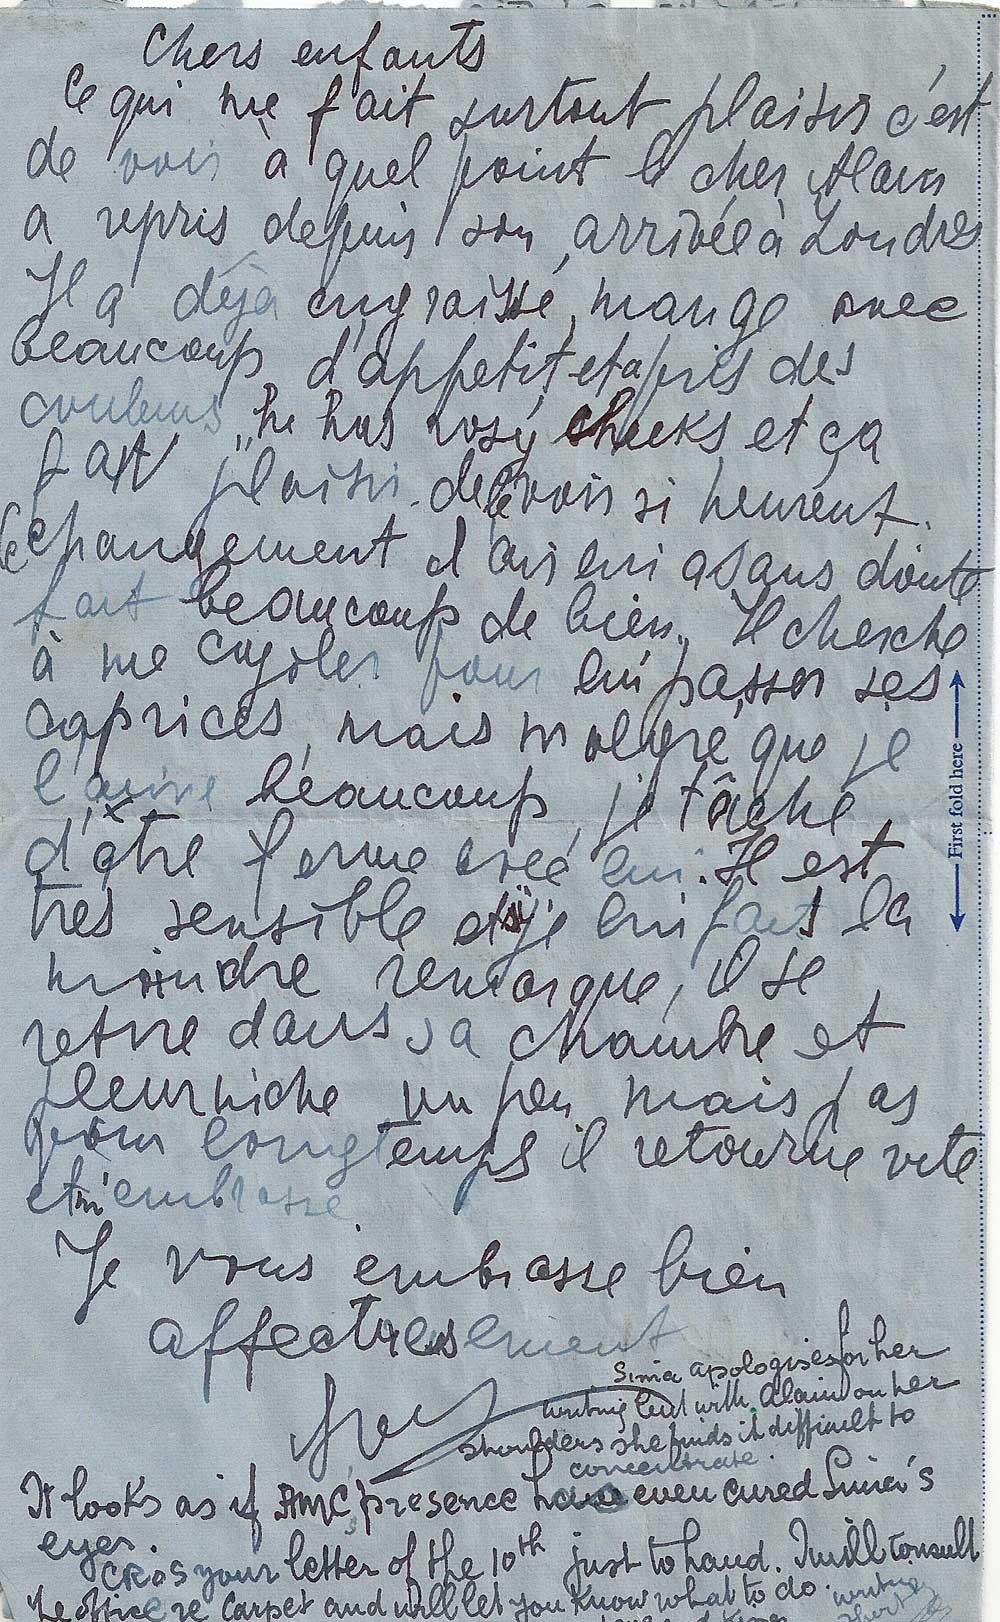 Chers enfants
Ce qui me fait surtout plaisir c'est
de voir à quel point le cher Alain
a repris depuis son arrivée à Londres
Il a déjà engraissé, mange avec
beaucoup d'appetit, et a pris des
couleurs „he has rosy cheeks et ça
fait plaisir de le voir si heureux.
Le changement d'air lui a sans doute
fait beaucoup de bien. Il cherche
à me cajoler pour lui passer ses
caprices, mais malgré que je
l'aime beaucoup, je tâche
d'être ferme avec lui. Il est
très sensible et si je lui fais la
moindre remarque, il se
retire dans sa chambre et
pleurniche un peu mais pas
pour longtemps il retourne vite
et m'embrasse
Je vous embrasse bien
affectueusement
Simia apologises for her
writing but with Alain on her
shoulders she finds it difficult to
concentrate.
First fold here
It looks as if AMC's presence have even cured Simia's
eyes.
CROS your letter of the 10th just to hand. I will consult
the office re carpet and will let you know what to do. writing